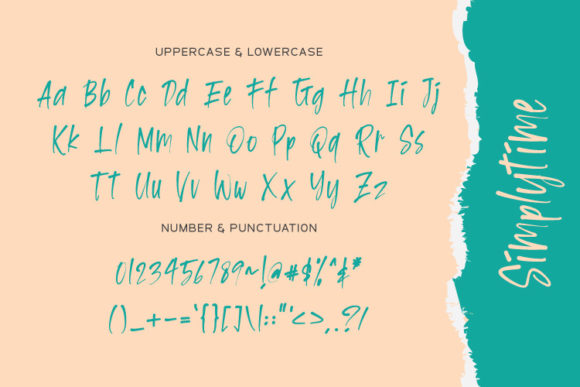 UPPERCASE & LOWERCASE
Aa Bb Cc Dd Ee Ff Gg Hh Ii Jj
Kk Ll Mm Nn Oo Pp Qq Rr Ss
Tt Uu Vv Ww Xx Yy Zz
NUMBER & PUNCTUATION
0123456789~!@#$%^&*
()_+-=`{}[]\|:;"'<>,.?/
Simplytime